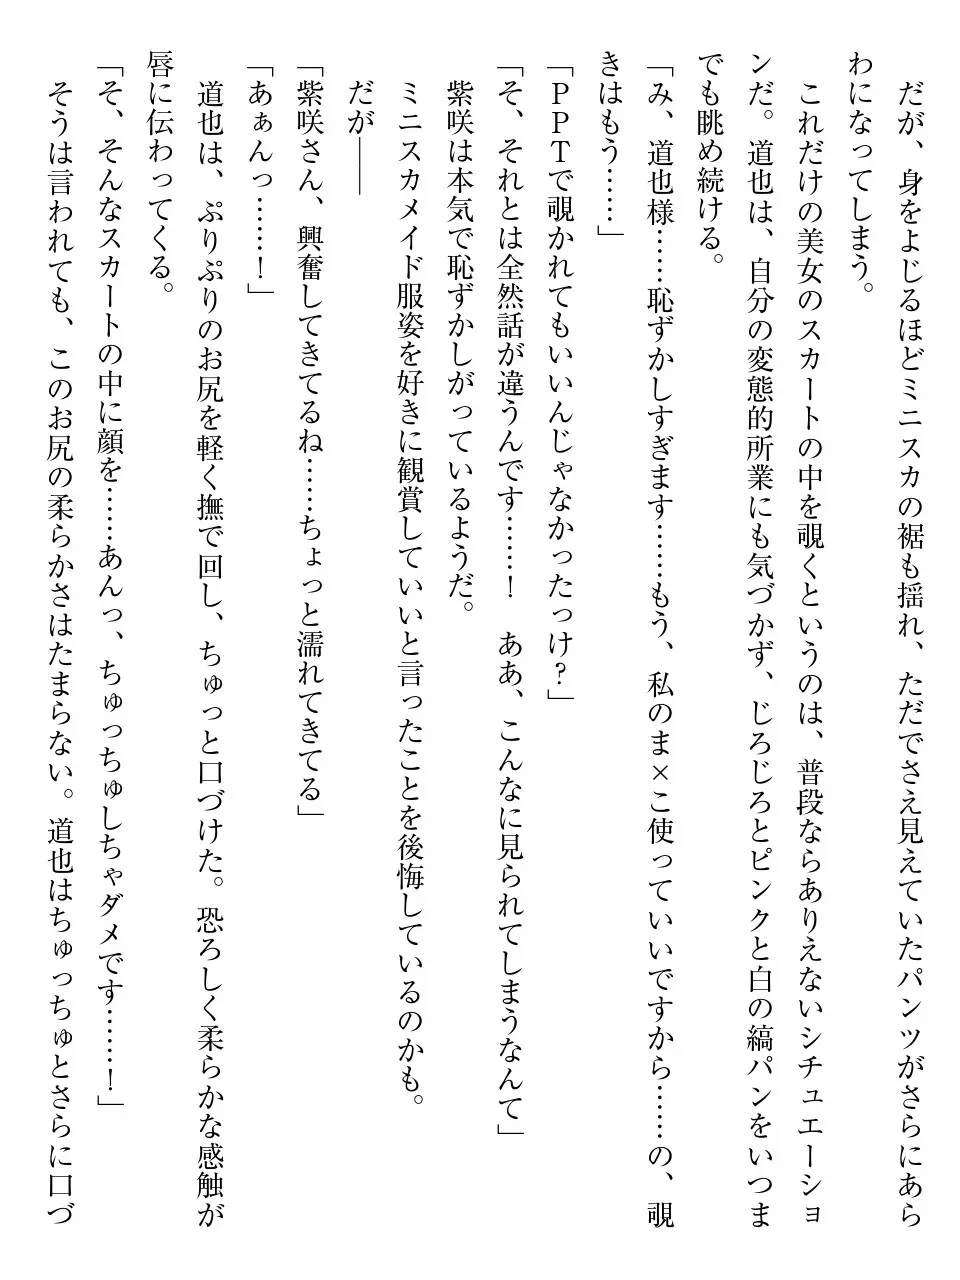 だが、身をよじるほどミニスカの裾も揺れ、ただでさえ見えていたパンツがさらにあら
わになってしまう。
これだけの美女のスカートの中を覗くというのは、普段ならありえないシチュエーショ
ンだ。道也は、自分の変態的所業にも気づかず、じろじろとピンクと白の縞パンをいつま
でも眺め続ける。
「み、道也様……恥ずかしすぎます……もう、私のま×こ使っていいですから……の、覗
きはもう……」
「ＰＰＴで覗かれてもいいんじゃなかったっけ？」
「そ、それとは全然話が違うんです……！　ああ、こんなに見られてしまうなんて」
紫咲は本気で恥ずかしがっているようだ。
ミニスカメイド服姿を好きに観賞していいと言ったことを後悔しているのかも。
だが――
「紫咲さん、興奮してきてるね……ちょっと濡れてきてる」
「あぁんっ……！」
道也は、ぷりぷりのお尻を軽く撫で回し、ちゅっと口づけた。恐ろしく柔らかな感触が
唇に伝わってくる。
「そ、そんなスカートの中に顔を……あんっ、ちゅっちゅしちゃダメです……！」
そうは言われても、このお尻の柔らかさはたまらない。道也はちゅっちゅとさらに口づ